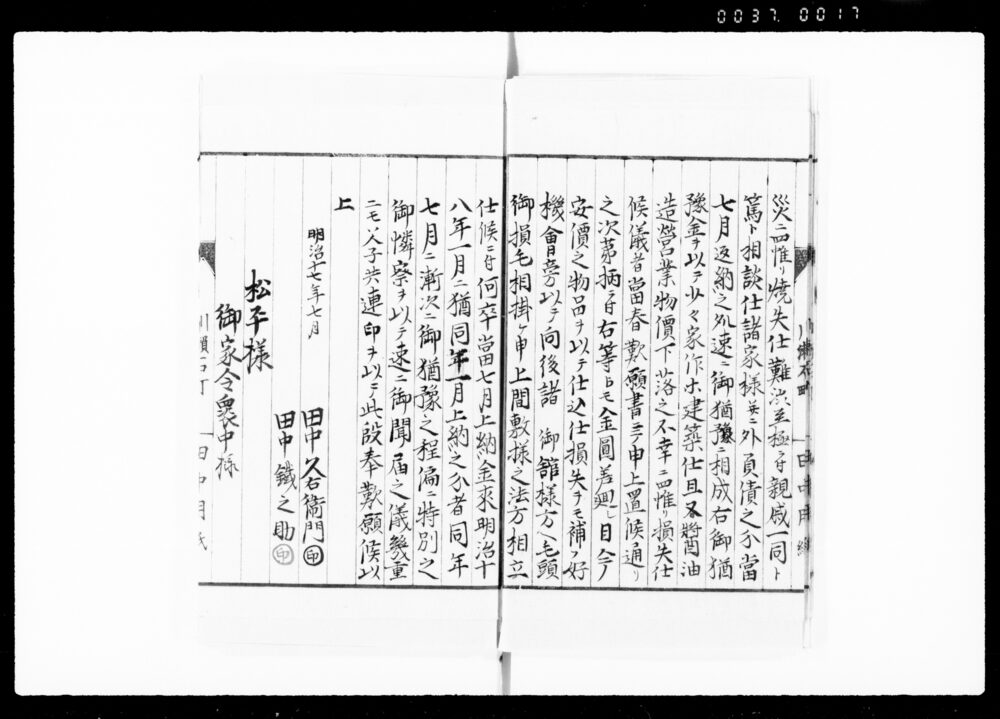 0037.0017
災ニ罹リ焼失仕難渋至極ニ付親戚一同ト
篤ト相談仕諸家様并ニ外負債之分當
七月返納之処速ニ御猶豫ニ相成右御猶
豫金ヲ以テ少々家作ホ建築仕且又醬油
造營業物價下落之不幸ニ罹リ損失仕
候儀者當春歎願書ニテ申上置候通リ
之次第柄ニ付右等ヒモ金圓差廻シ目今ノ
安價之物品ヲ以テ仕込仕損失ヲモ補フ好
機會旁以テ向後諸 御舘様方ヘ毛頭
御損毛相掛ケ申上間敷様之法方相立
仕候ニ付何卒當七月上納金来明治十
八年一月ニ猶同年一月上納之分者同年
七月ニ漸次ニ御猶豫之程偏ニ特別之
御憐察ヲ以テ速ニ御聞届之儀幾重
ニモ人子共連印ヲ以テ此段奉歎願候以
上
明治十七年七月
田中久右衛門㊞
田中鐵之助㊞
松平様
御家令衆中様